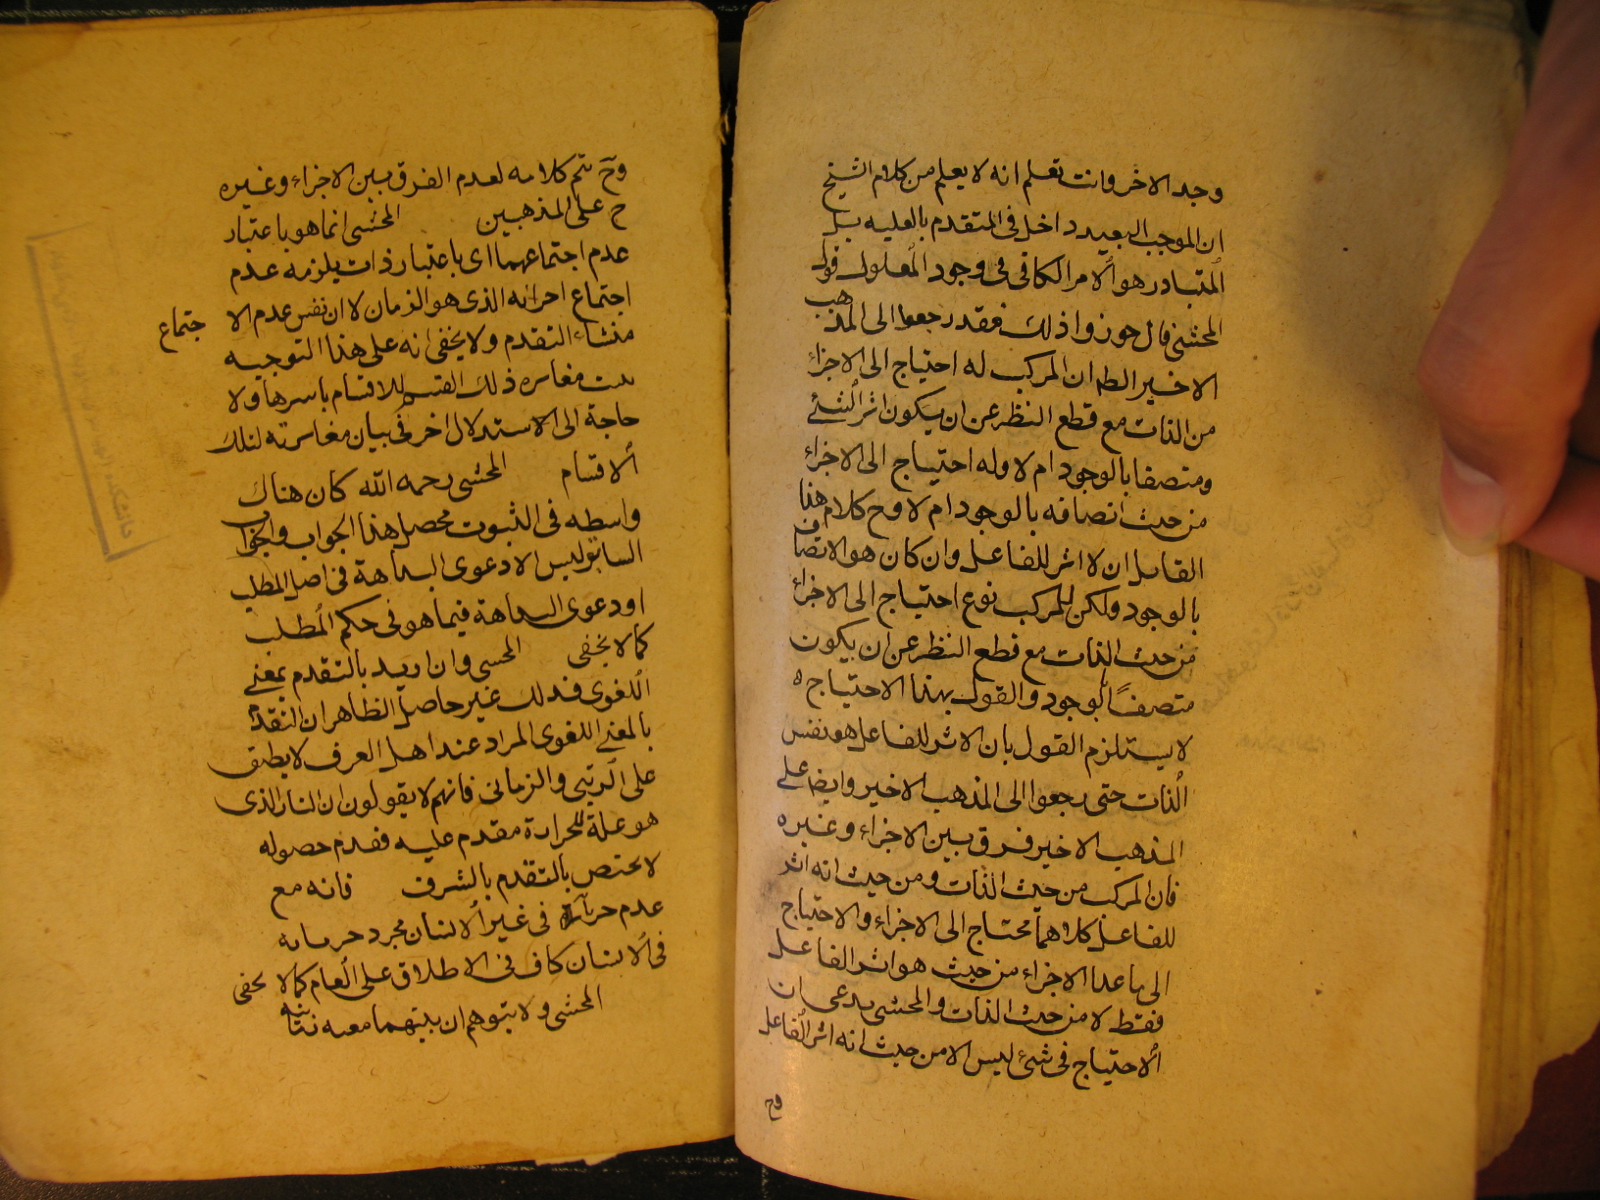 وجد الاخر وانت تعلم انه لا يعلم من كلام الشيخ
ان الموجب البعيد داخل فى المتقدم بالعليه بل
المتبادر هو الامر الكافى فى وجود المعلول قول
المحشى قال جوزوا ذلك فقد رجعوا الى المذهب
الاخير الظ ان المركب له احتياج الى الاجزاء
من الذات مع قطع النظر عن ان يكون اثر الشئ
ومتصفا بالوجود ام لا وله احتياج الى الاجزاء
من حيث اتصافه بالوجود ام لا وح كلام هذا
القايل ان لا اثر للفاعل وان كان هو الاتصاف
بالوجود ولكن للمركب نوع احتياج الى الاجزاء
من حيث الذات مع قطع النظر عن ان يكون
متصفا بالوجود والقول بهذا الاحتياج
لا يستلزم القول بان الاثر للفاعل هو نفس
الذات حتى رجعوا الى المذهب الاخير وايضا على
المذهب الاخير فرق بين الاجزاء وغيره
فان المركب من حيث الذات ومن حيث انه اثر
للفاعل كلاهما محتاج الى الاجزاء والاحتياج
الى ما عدا الاجزاء من حيث هو اثر الفاعل
فقط لا من حيث الذات والمحشى يدعى ان
الاحتياج فى شئ ليس الا من حيث انه اثر الفاعل
وح
وح يتم كلامه لعدم الفرق بين الاجزاء وغيره
ح على المذهبين المحشى انما هو باعتبار
عدم اجتماعهما اى باعتبار ذات يلزمه عدم
اجتماع اجزائه الذى هو الزمان لا ان نفس عدم الا جتماع
منشاء التقدم ولا يخفى انه على هذا التوجيه
مغايره ذلك القسم للاقسام باسرها ولا
حاجة الى الاستدلال اخر فى بيان مغايرته لتلك
الاقسام المحشى رحمه الله كان هناك
واسطه فى الثبوت محصل هذا الجواب والجواب
السابق ليس الا دعوى البداهة فى اصل المطلب
او دعوى البداهة فيما هو فى حكم المطلب
كما لا يخفى المحشى وان اريد بالتقدم بمعنى
اللغوى فذلك غير حاصل الظاهر ان التقدم
بالمعنى اللغوى المراد عند اهل العرف لا يطلق
على الرتبى والزمانى فانهم لا يقولون ان النار الذى
هو علة للحرارة مقدم عليه فقدم حصوله
لا يختص بالتقدم بالشرف فانه مع
عدم فى غير الانسان مجرد جريانه
فى الانسان كاف فى الاطلاق على العام كما لا يخفى
المحشى ولا يتوهم ان بينهما معيه